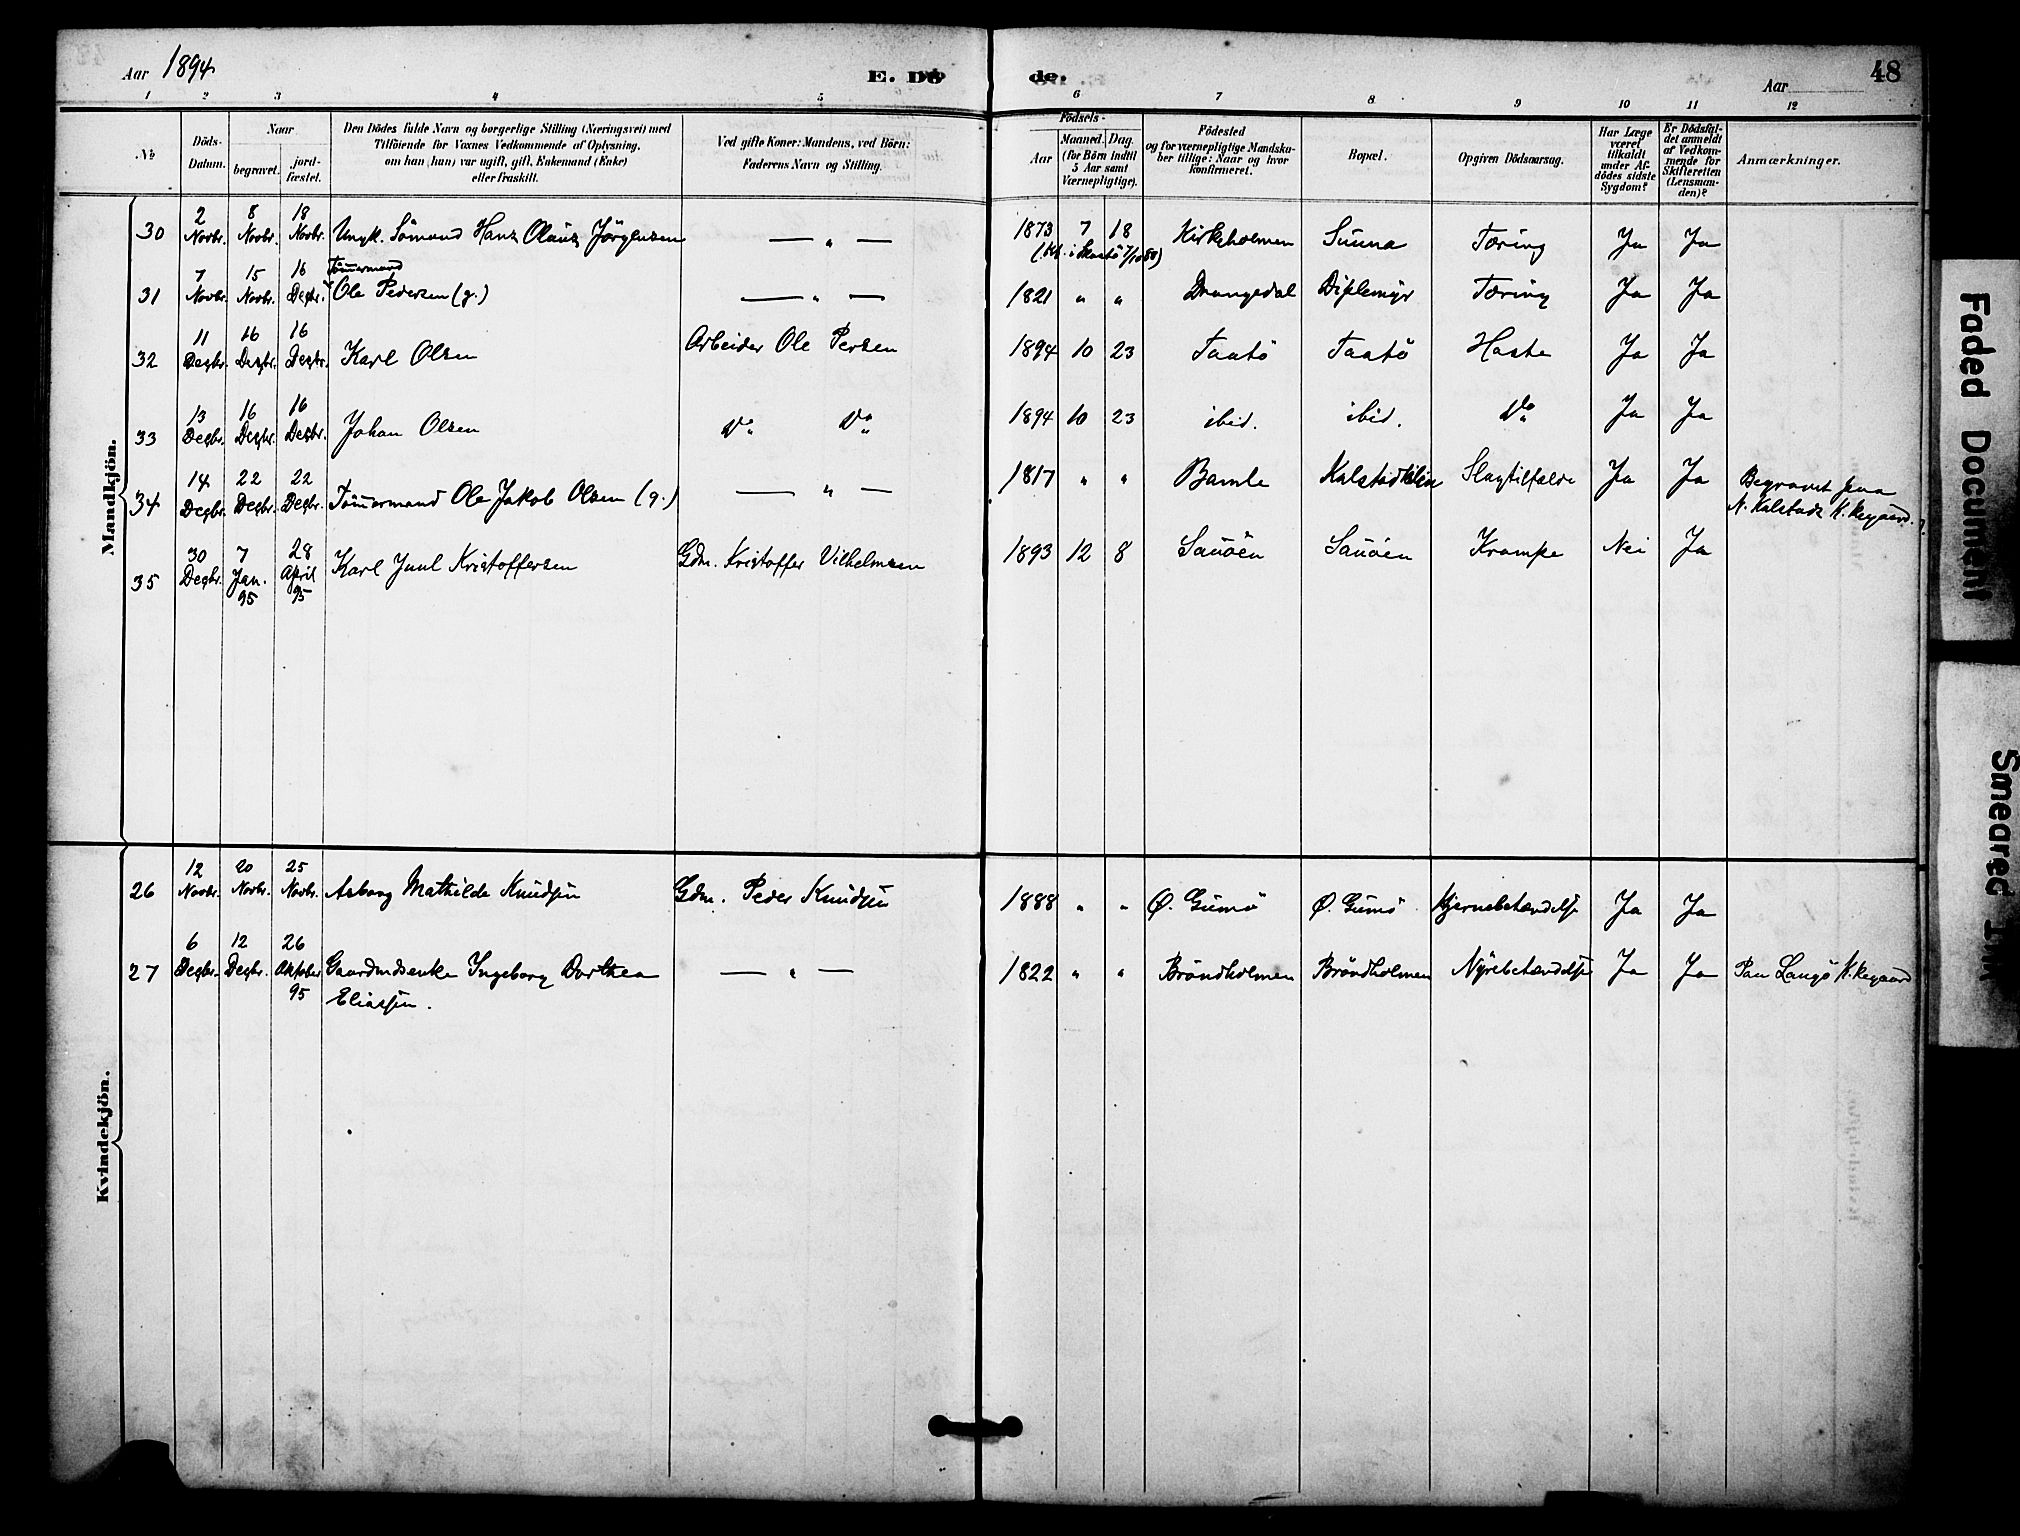 Aar 1894
E. Dö
de.
Aar
48
1 2 3 4 5 6 7 8 9 10 11 12
No.
Döds-
Datum.
Naar
begravet.
jord-
fæstet.
Den Dödes fulde Navn og borgerlige Stilling (Næringsvei) med
Tilföiende for Voxnes Vedkommende af Oplysning,
om han (hun) var ugift, gift, Enkemand (Enke)
eller fraskilt.
Ved gifte Koner: Mandens, ved Börn:
Faderens Navn og Stilling.
Födsels-
Aar
Maaned. Dag.
(for Börn indtil
5 Aar samt
Værnepligtige).
Födested
og for værnepligtige Mandska-
ber tillige: Naar og hvor
konfirmeret.
Bopæl.
Opgiven Dödsaarsag.
Har Læge
været
tilkaldt
under Af-
dödes sidste
Sygdom?
Er Dödsfal-
det anmeldt
af Vedkom-
mende for
Skifteretten
(Lensman-
den)?
Anmærkninger.
Mandkjön.
30 2 Novbr. 8 Novbr. 18 Novbr. Ungk. Sömand Hans Olaus Jörgensen — " — 1873 7 18 Kirkeholmen Tæring Ja Ja
31 7 Novbr. 15 Novbr. 16 Decbr. Tömmermand Ole Pedersen (g.) — " — 1821 " " Drangedal Tæring Ja Ja
32 11 Decbr. 16 Decbr. 16 Decbr. Karl Olsen Arbeider Ole Persen 1894 10 23 Taatö Taatö Hoste Ja Ja
33 13 Decbr. 16 Decbr. 16 Decbr. Johan Olsen Do Do 1894 10 23 ibid. ibid. Do Ja Ja
34 14 Decbr. 22 Decbr. 22 Decbr. Tömmermand Ole Jakob Olsen (g.) — " — 1817 " " Bamle Kalstadkilen Slagtilfælde Ja Ja Begravet fra
N. Kalstads K.kegaard.
35 30 Decbr. 7 Jan. 95 28 April 95 Karl Juul Kristoffersen Gdm. Kristoffer Vilhelmsen 1893 12 8 Sauöen Sauöen Krampe Nei Ja
Kvindekjön.
26 12 Novbr. 20 Novbr. 25 Novbr. Asborg Mathilde Knudsen Gdm. Peder Knudsen 1888 " " Ø. Gumö Ø. Gumö Hjernebetændelse Ja Ja
27 6 Decbr. 12 Decbr. 26 Oktober 95 Gaardmdsenke Ingeborg Dorthea
Eliassen. — " — 1822 " " Bröndholmen Bröndholmen Nyrebetændelse Ja Ja Paa Langö K.kegaard
Faded Document
Smeared Ink